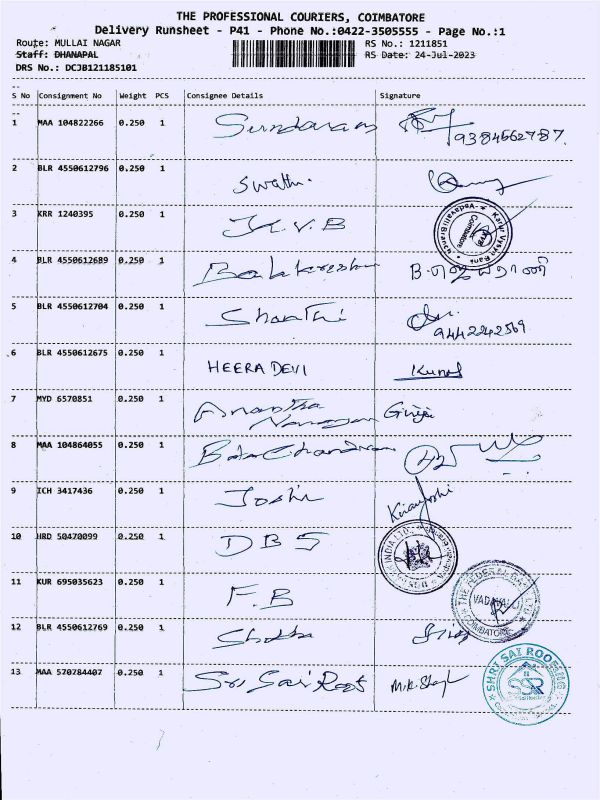 THE PROFESSIONAL COURIERS, COIMBATORE
Delivery Runsheet - P41 - Phone No.:0422-3505555 - Page No.:1
Route: MULLAI NAGAR RS No.: 1211851
Staff: DHANAPAL RS Date: 24-Jul-2023
DRS No.: DCJB121185101
S No Consignment No Weight PCS Consignee Details Signature
1 MAA 104822266 0.250 1 Sundaram
9384562787.
2 BLR 4550612796 0.250 1 Swathi.
3 KRR 1240395 0.250 1 K.V.B
4 BLR 4550612689 0.250 1 Balakreshnan
5 BLR 4550612704 0.250 1 Shanthi
9442242569
6 BLR 4550612675 0.250 1 HEERA DEVI Kunal
7 MYD 6570851 0.250 1 Anantha Girija
Narayanan
8 MAA 104864055 0.250 1 Balachandran
9 ICH 3417436 0.250 1 Joshi Kiranjoshi
10 HRD 50470099 0.250 1 DBS
INDIA LTD.
11 KUR 695035623 0.250 1 F.B
THE FEDERAL BANK LTD.
VADAVALLI
COIMBATORE
12 BLR 4550612769 0.250 1 Shobha
13 MAA 570784407 0.250 1 Sri Sai Roof
SHRI SAI ROOFING
SSR